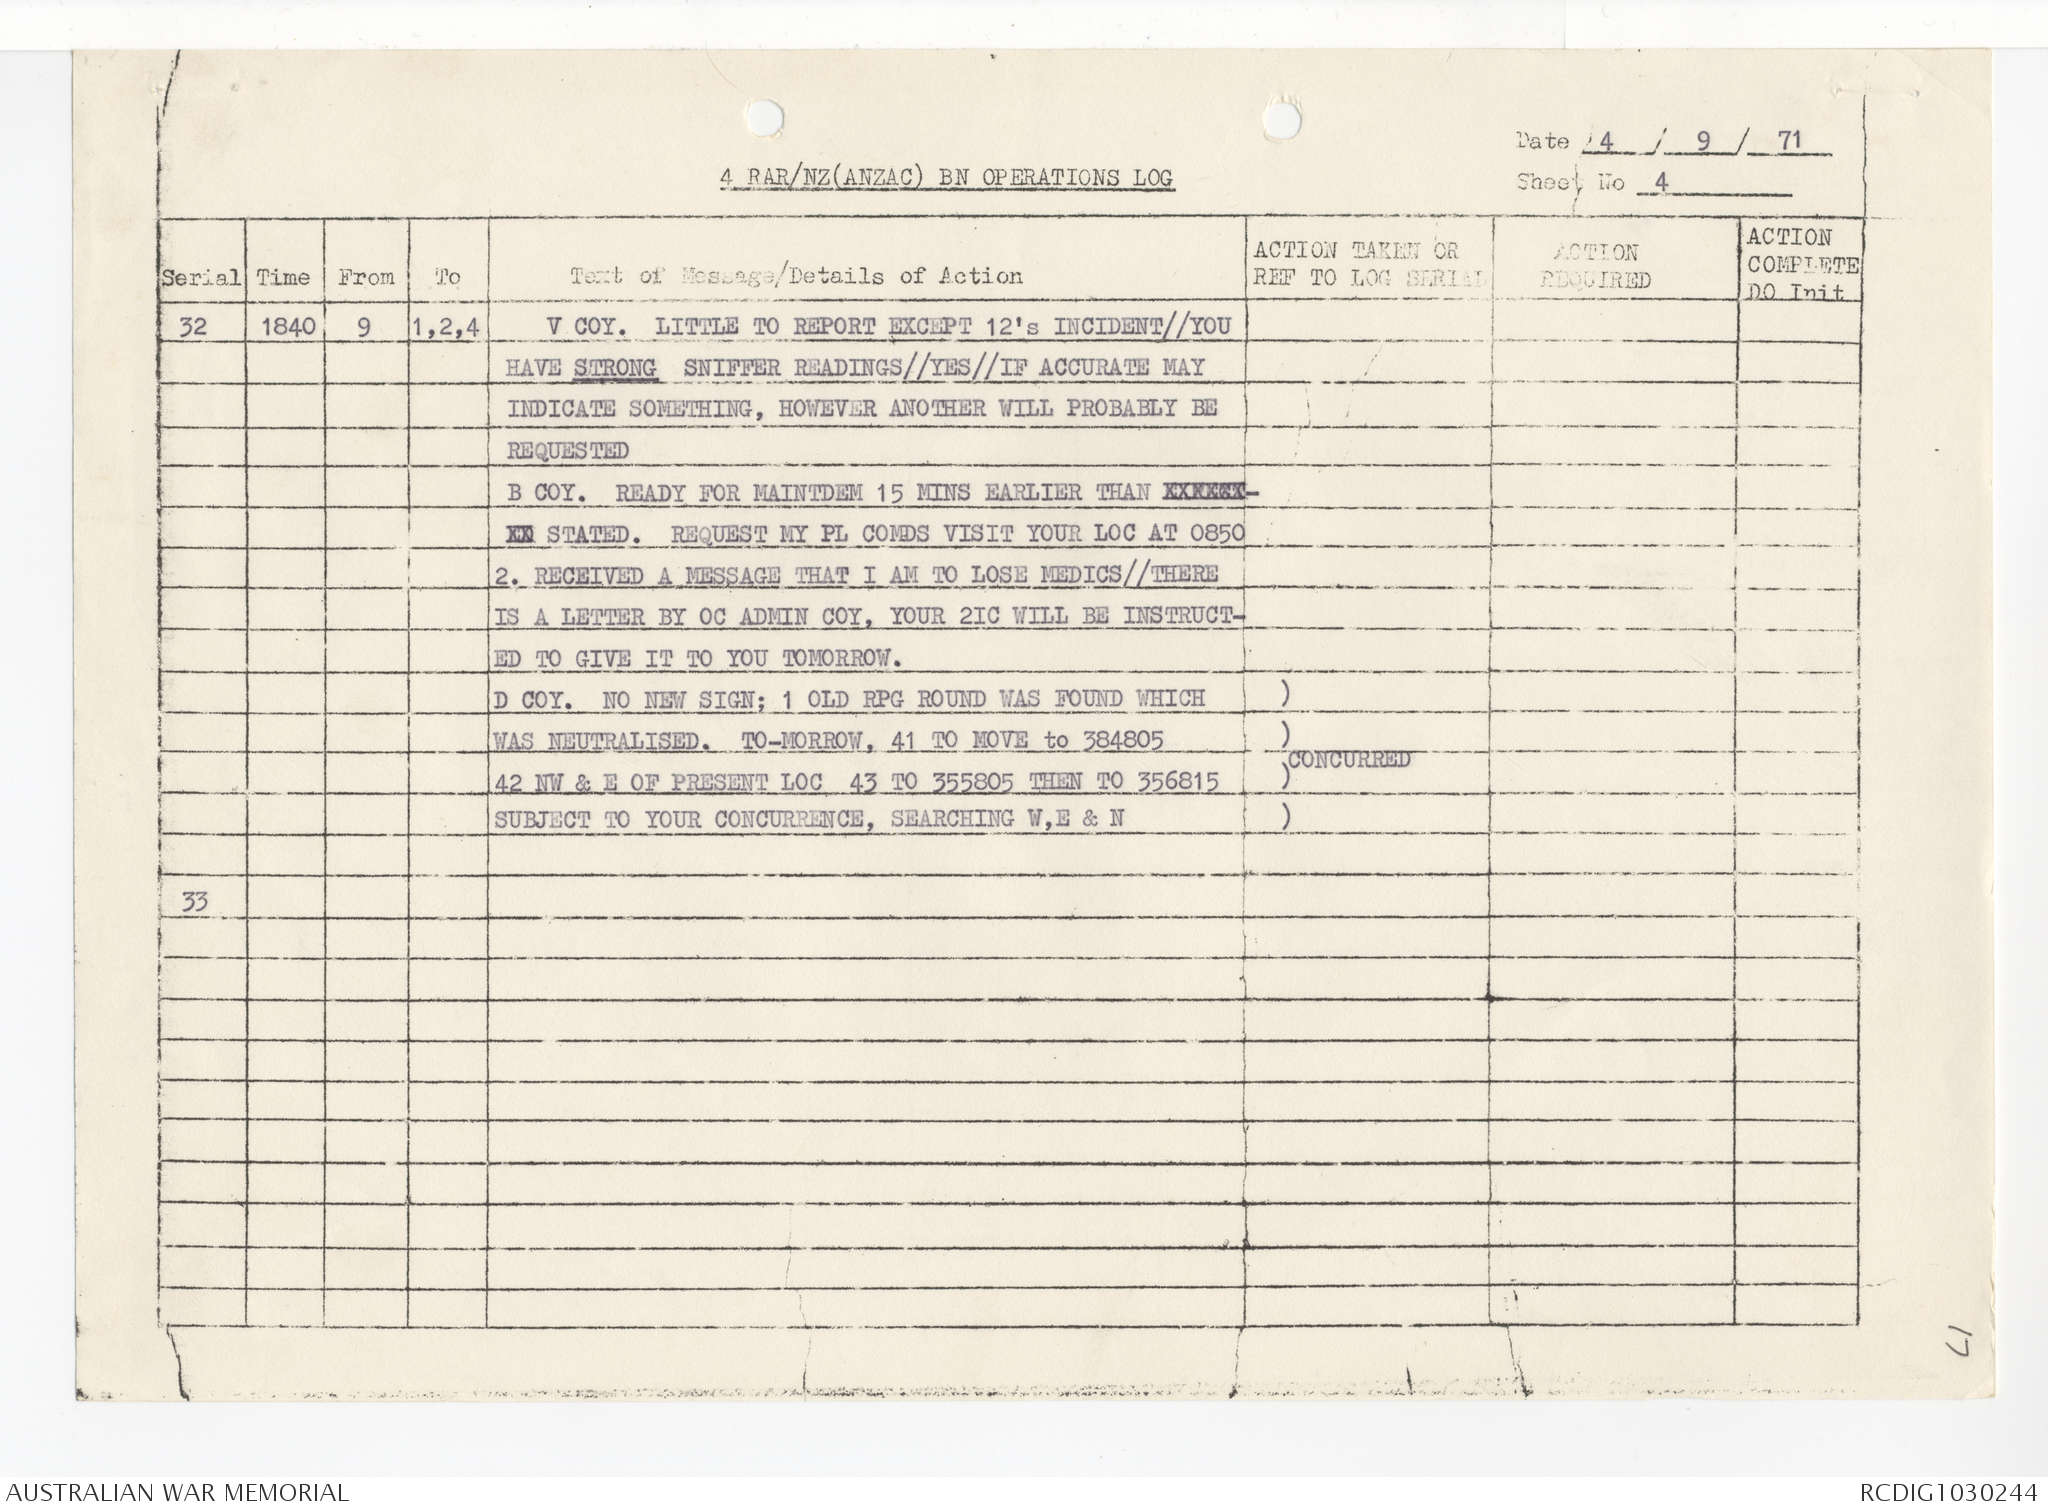 Date 4 / 9 / 71
4 RAR/NZ(ANZAC) BN OPERATIONS LOG
Sheet No 4
Serial Time From To Text of Message/Details of Action ACTION TAKEN OR REF TO LOG SERIAL ACTION REQUIRED ACTION COMPLETE DO Init
32 1840 9 1,2,4 V COY. LITTLE TO REPORT EXCEPT 12's INCIDENT//YOU
HAVE STRONG SNIFFER READINGS//YES//IF ACCURATE MAY
INDICATE SOMETHING, HOWEVER ANOTHER WILL PROBABLY BE
REQUESTED
B COY. READY FOR MAINTDEM 15 MINS EARLIER THAN XXXXXX-
XX STATED. REQUEST MY PL COMDS VISIT YOUR LOC AT 0850
2. RECEIVED A MESSAGE THAT I AM TO LOSE MEDICS//THERE
IS A LETTER BY OC ADMIN COY, YOUR 2IC WILL BE INSTRUCT-
ED TO GIVE IT TO YOU TOMORROW.
D COY. NO NEW SIGN; 1 OLD RPG ROUND WAS FOUND WHICH )
WAS NEUTRALISED. TO-MORROW, 41 TO MOVE to 384805 )
CONCURRED
42 NW & E OF PRESENT LOC 43 TO 355805 THEN TO 356815 )
SUBJECT TO YOUR CONCURRENCE, SEARCHING W,E & N )
33
17
AUSTRALIAN WAR MEMORIAL
RCDIG1030244